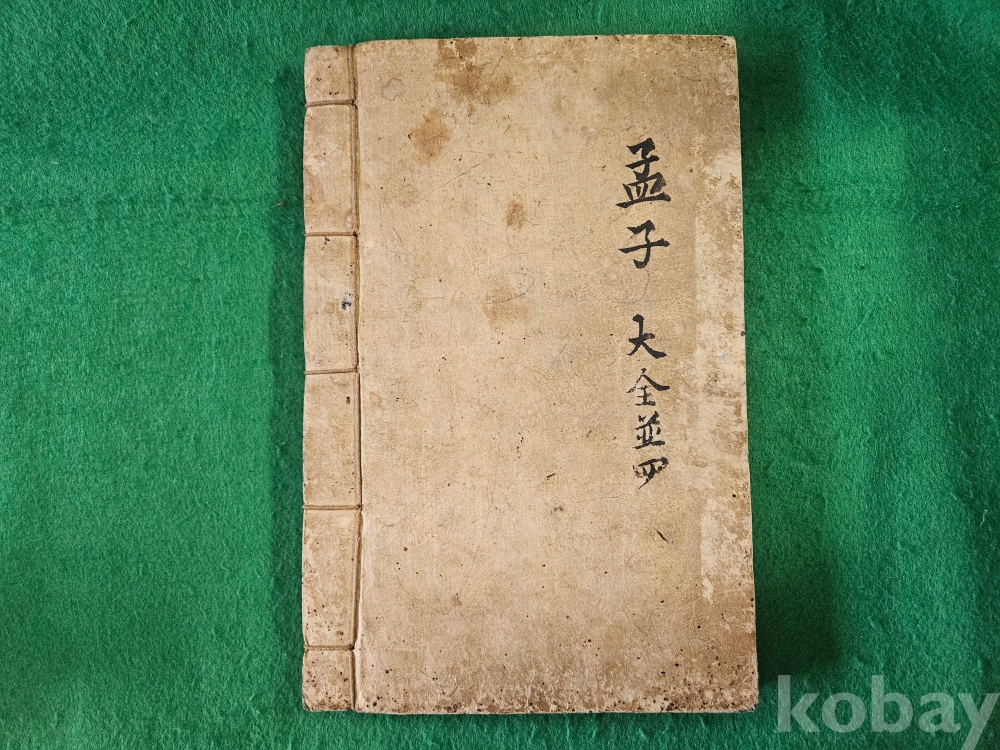 孟子 大全並四
kobay